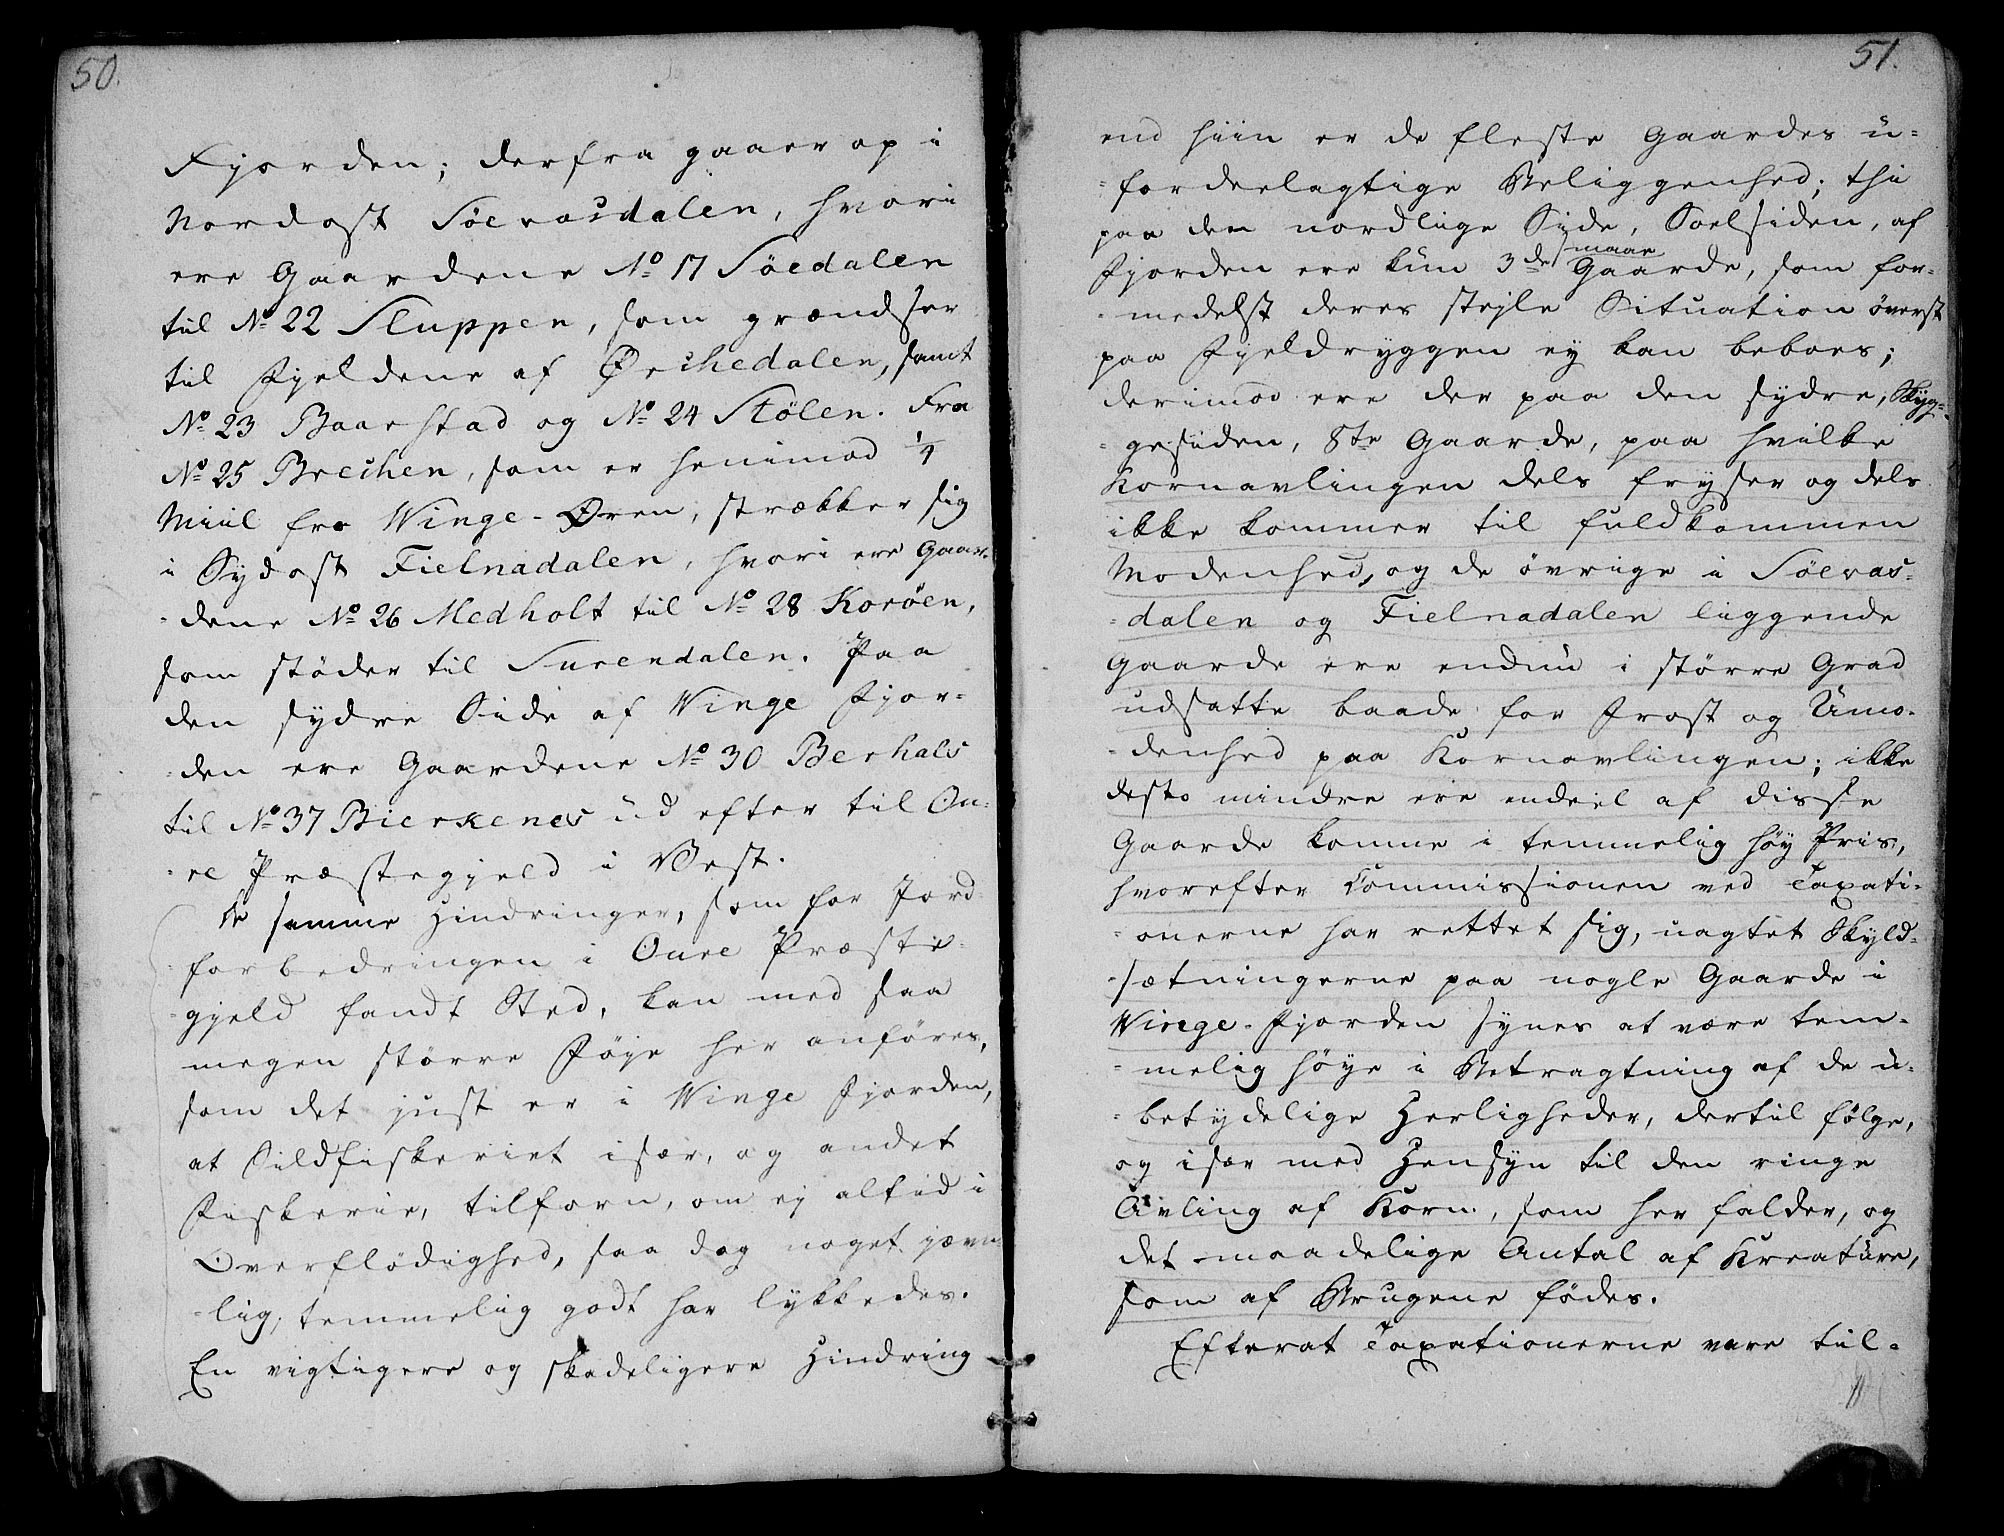 50.
Fjorden; derfra gaaer op i
Nordost Söevasdalen, hvori
ere Gaardene No 17 Söedalen
til No 22 Sluppen, som grændser
til Fjeldene af Örchedalen, samt
No 23 Baarstad og No 24 Stölen. Fra
No 25 Brechen, som er henimod 1/4
Miil fra Winge-Øren, strækker sig
i Sydost Fielnadalen, hvori ere Gaar-
-dene No 26 Medholt til No 28 Koröen,
som stöder til Surendalen. Paa
den sydre Side af Winge Fjor-
-den ere Gaardene No 30 Berhals
til No 37 Bierkenes ud efter til Ou-
-re Præstegjeld i Vest.
De samme Hindringer, som for Jord-
forbedringen i Oure Præste-
-gjeld fandt Sted, kan med saa
megen större Föje her anföres,
som det just er i Winge Fjorden,
at Sildfiskeriet især, og andet
Fiskerie, tilforn, om ej altid i
Overflödighed, saa dog noget jævn-
-lig, temmelig godt har lykkedes.
En vigtigere og skadeligere Hindring
51.
end hiin er de fleste Gaardes u-
-fordeelagtige Beliggenhed; thi
paa den nordlige Side, Soelsiden, af
Fjorden ere kun 3de smaae Gaarde, som for-
-medelst deres stejle Situation överst
paa Fjeldryggen ej kan beboes;
derimod ere der paa den sydre, Skyg-
-gesiden, 8te Gaarde, paa hvilke
Kornavlingen dels fryser og dels
ikke kommer til fuldkommen
Modenhed, og de övrige i Söevas-
-dalen og Fielnadalen liggende
Gaarde ere endnu i större Grad
udsatte baade for Frost og Umo-
-denhed paa Kornavlingen; ikke
desto mindre ere endeel af disse
Gaarde komne i temmelig höy Pris,
hvorefter Commissionen ved Taxati-
-onerne har rettet sig, uagtet Skyld-
-sætningerne paa nogle Gaarde i
Winge-Fjorden synes at være tem-
-melig höye i Betragtning af de u-
-betydelige Herligheder, dertil fölge,
og især med Hensyn til den ringe
Avling af Korn, som her falder, og
det maadelige Antal af Kreature,
som af Brugene födes.
Efterat Taxationerne vare til-